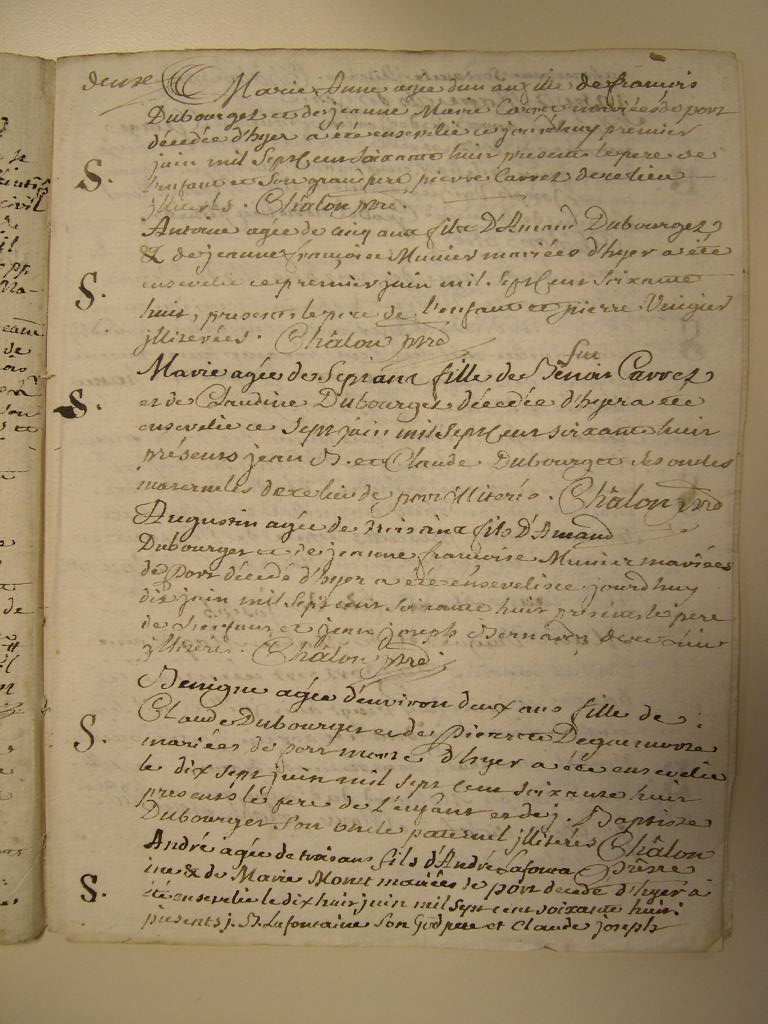 deuxe Marie Anne agée d'un an fille de francois
Dubourget et de jeanne Marie Carret mariées de port
décédée d'hyer a été ensevelie ce jourdhuy premier
S. juin mil Sept Cent Soixante huit présent le pere de
l'enfant et Son grand pere pierre Carret de ce lieu
jlliterés. Châlon prre.
Antoine agée de cinq ans fils D'Amand Dubourget
& de jeanne françoise Munier mariées d'hyer a été
S. ensevelie ce premier juin mil Sept Cent Soixante
huit, presents le pere de l'enfant et pierre
jlliterées. Châlon prre
feu
Marie agée de Sept ans fille de Benoit Carret
S. et de Claudine Dubourget décedée d'hyer a été
ensevelie ce Sept juin mil Sept Cent soixante huit
présents jean B. et Claude Dubourget ses oncles
maternels de ce lieu de port illiterés. Châlon prre
Augustin agée de trois ans fils D'Amand
Dubourget et de jeanne françoise Munier mariées
de port décedé d'hyer a été ensevelis ce jourdhuy
dix juin mil Sept cent Soixante huit présents le pere
de l'enfant et jean joseph Bernard de ce lieu
jlliterés. Châlon prre.
Benigne agée d'environ deux ans fille de
S. Claude Dubourget et de Pierrette
mariées de port morte d'hyer a été ensevelie
le dix sept juin mil sept cent soixante huit
presents le pere de l'enfant et de j. Baptiste
Dubourget Son oncle paternel jlliterés Châlon
André agée de trois ans fils d'André Lafonta prêtre
S. ine & de Marie Monet mariées de port decedé d'hyer a
été ensevelie le dix huit juin mil sept cent soixante huit
présents j. Lafontaine Son God pere et Claude joseph